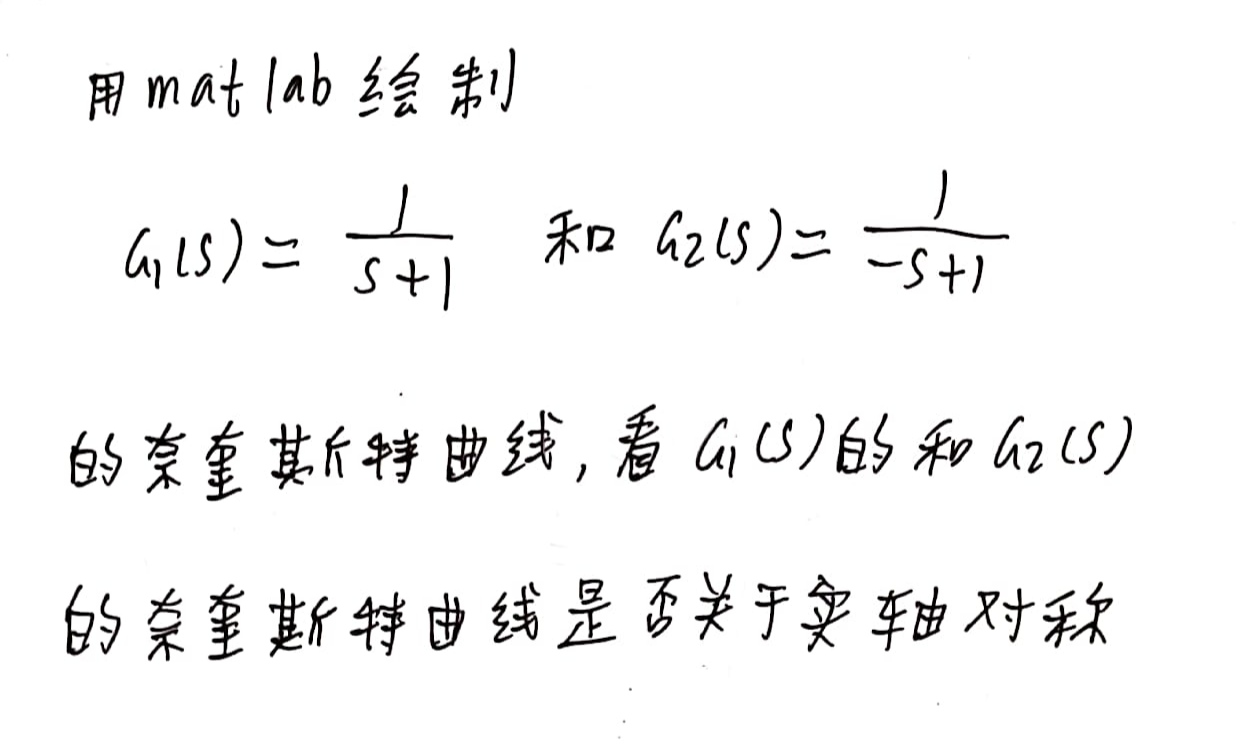 用matlab绘制
G1(S)=1/(S+1) 和 G2(S)=1/(-S+1)
的奈奎斯特曲线,看G1(S)的和G2(S)
的奈奎斯特曲线是否关于实轴对称